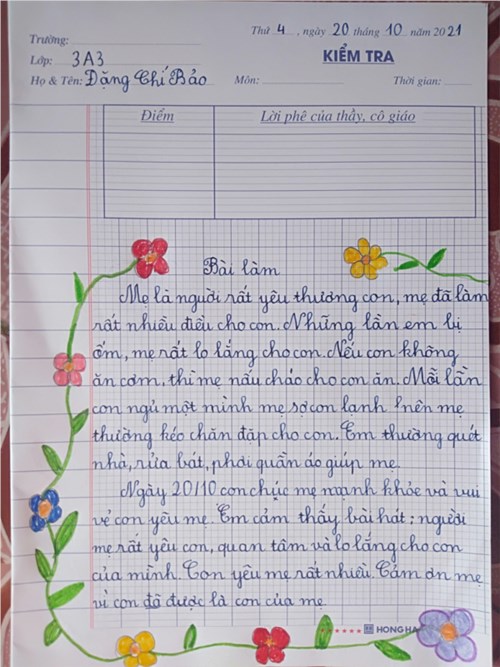 Thứ 4, ngày 20 tháng 10 năm 2021
Trường:
KIỂM TRA
Lớp: 3A3
Họ & Tên: Đặng Chí Bảo Môn: Thời gian:
Điểm Lời phê của thầy, cô giáo
Bài làm
Mẹ là người rất yêu thương con, mẹ đã làm
rất nhiều điều cho con. Những lần em bị
ốm, mẹ rất lo lắng cho con. Nếu con không
ăn cơm, thì mẹ nấu cháo cho con ăn. Mỗi lần
con ngủ một mình mẹ sợ con lạnh nên mẹ
thường kéo chăn đắp cho con. Em thường quét
nhà, rửa bát, phơi quần áo giúp mẹ.
Ngày 20/10 con chúc mẹ mạnh khỏe và vui
vẻ con yêu mẹ. Em cảm thấy bài hát: người
mẹ rất yêu con, quan tâm và lo lắng cho con
của mình. Con yêu mẹ rất nhiều. Cảm ơn mẹ
vì con đã được là con của mẹ
HONG HA